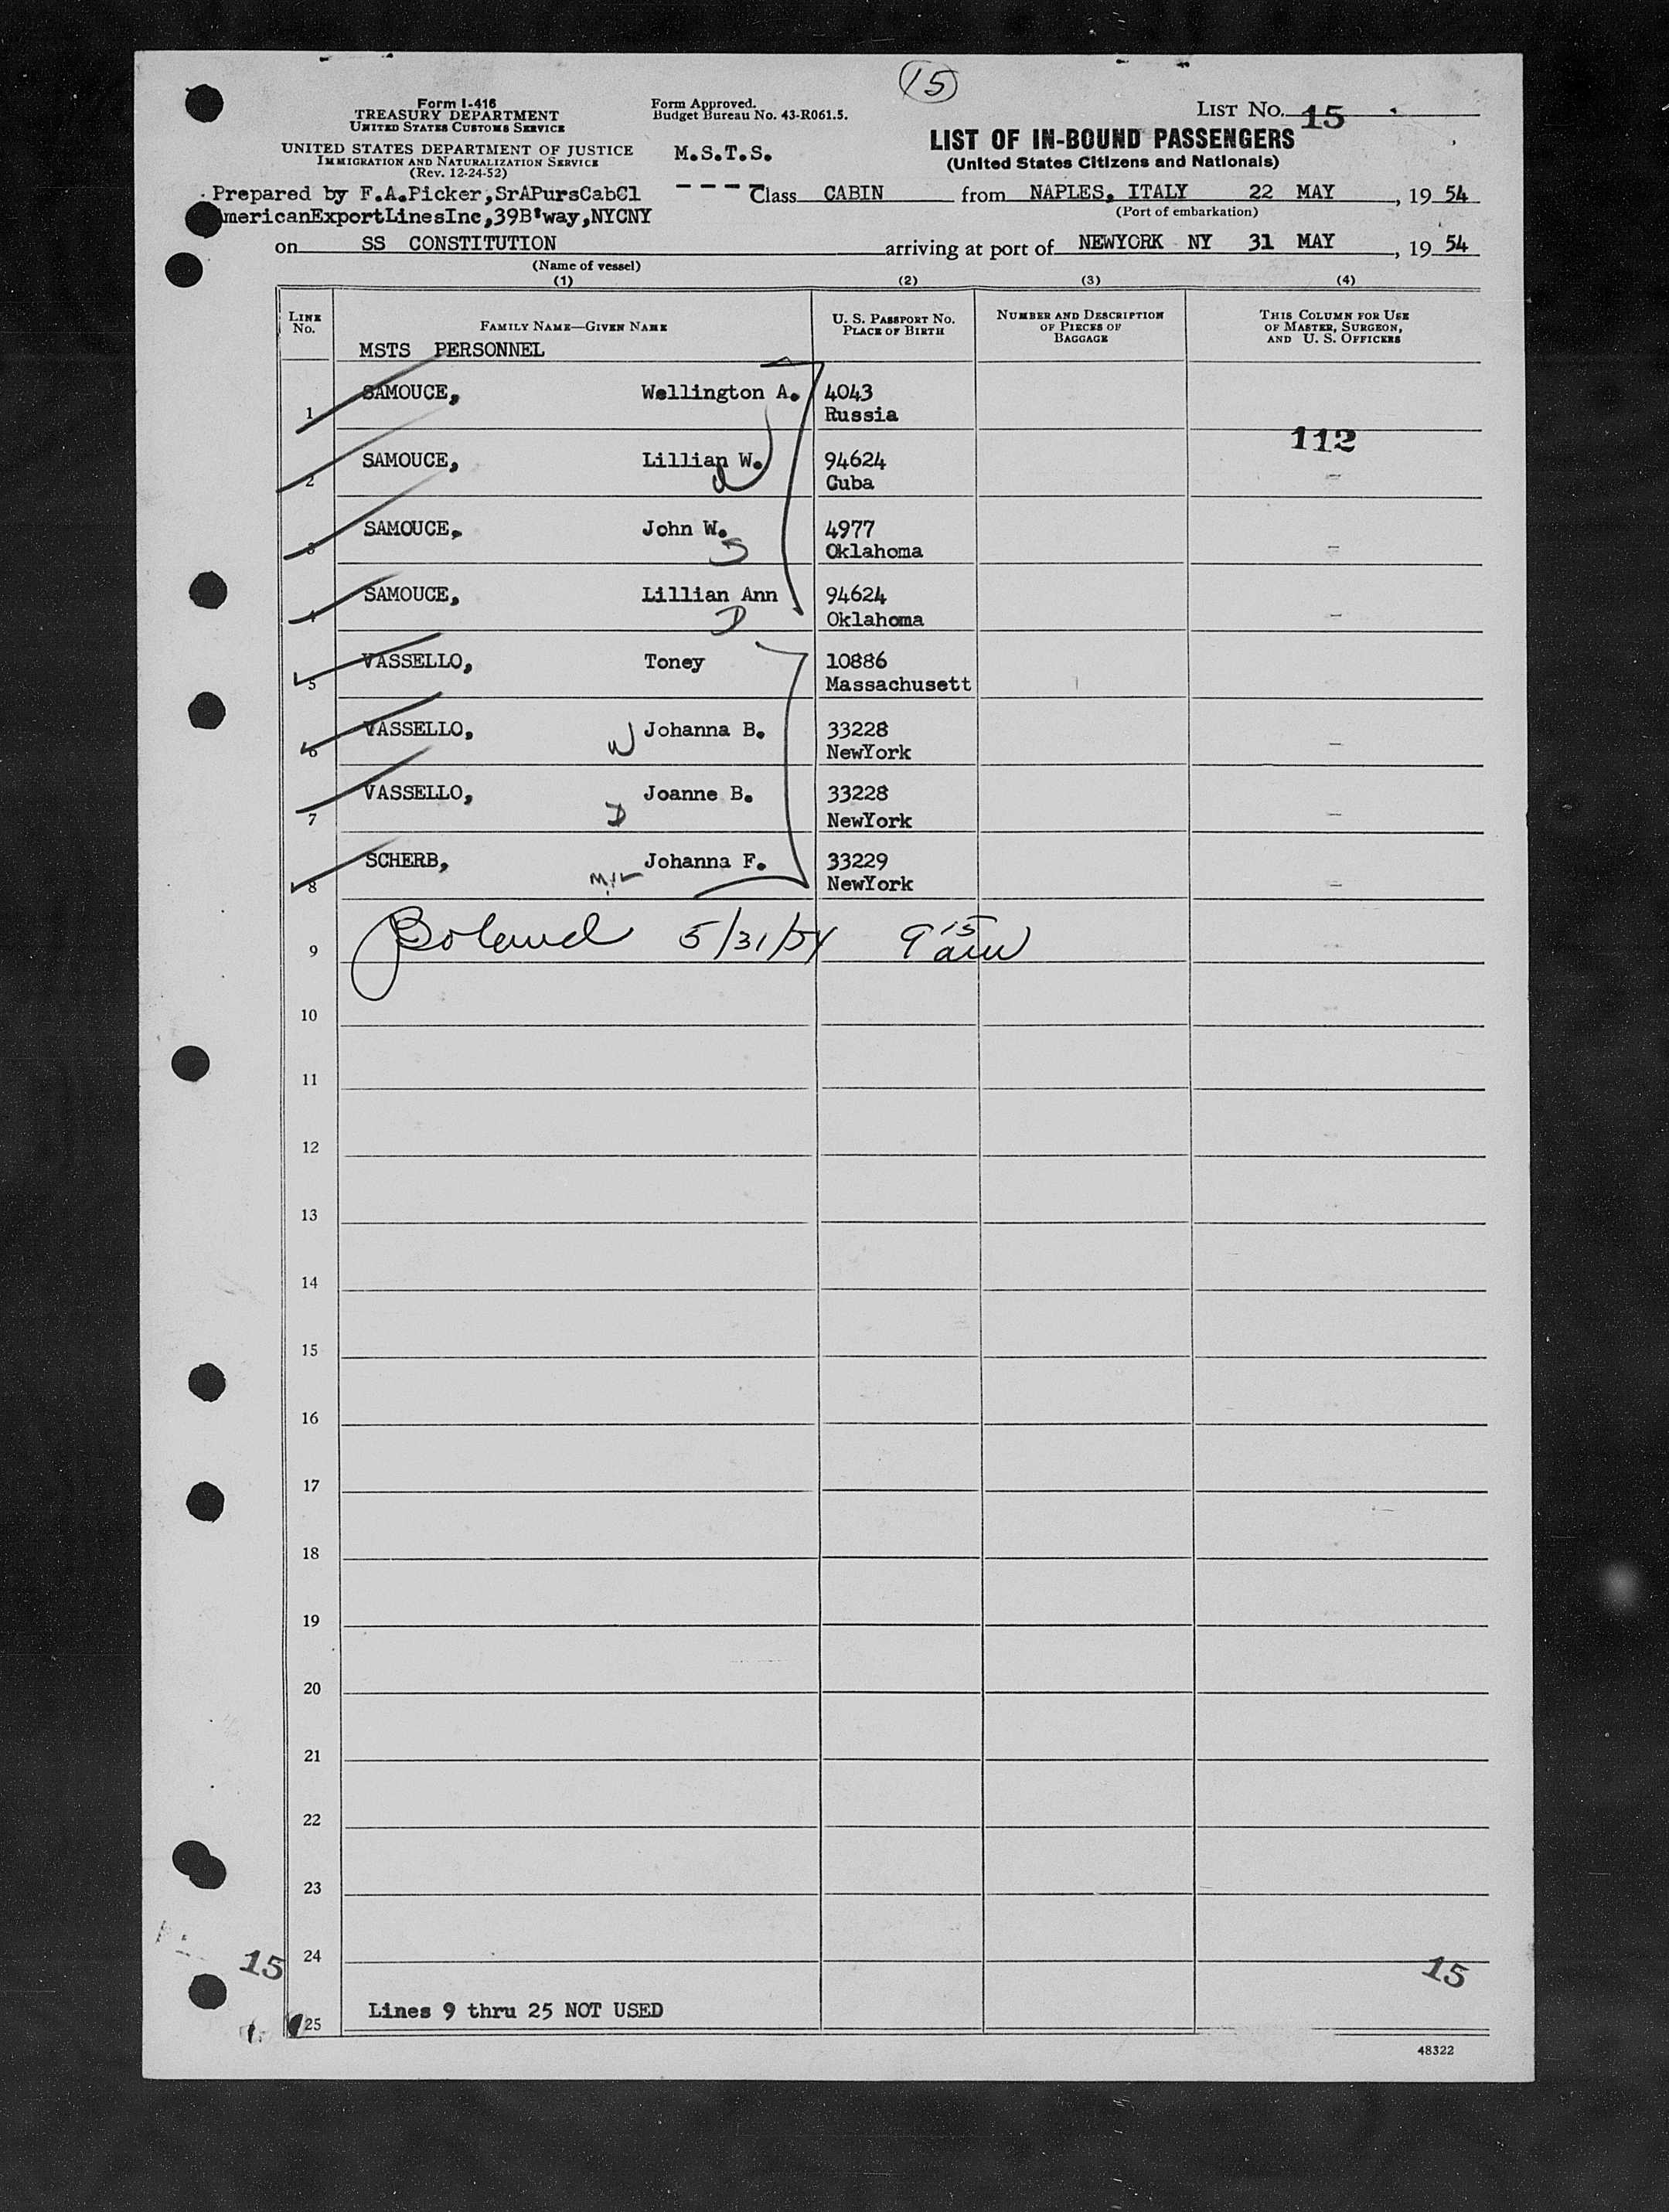 15
Form I-416
TREASURY DEPARTMENT
UNITED STATES CUSTOMS SERVICE
UNITED STATES DEPARTMENT OF JUSTICE
IMMIGRATION AND NATURALIZATION SERVICE
(Rev. 12-24-52)
Form Approved.
Budget Bureau No. 43-R061.5.
M.S.T.S.
LIST NO. 15
LIST OF IN-BOUND PASSENGERS
(United States Citizens and Nationals)
Prepared by F.A.Picker,SrAPursCabCl
AmericanExportLinesInc,39B'way,NYCNY
Class CABIN from NAPLES, ITALY 22 MAY, 19 54
(Port of embarkation)
on SS CONSTITUTION arriving at port of NEWYORK NY 31 MAY, 19 54
(Name of vessel)
(1) (2) (3) (4)
LINE No. FAMILY NAME—GIVEN NAME U. S. PASSPORT NO. PLACE OF BIRTH NUMBER AND DESCRIPTION OF PIECES OF BAGGAGE THIS COLUMN FOR USE OF MASTER, SURGEON, AND U. S. OFFICERS
MSTS PERSONNEL
1 SAMOUCE, Wellington A. 4043
Russia
112
2 SAMOUCE, Lillian W. 94624
W Cuba
3 SAMOUCE, John W. 4977
S Oklahoma
4 SAMOUCE, Lillian Ann 94624
D Oklahoma
5 VASSELLO, Toney 10886
Massachusett
6 VASSELLO, W Johanna B. 33228
NewYork
7 VASSELLO, D Joanne B. 33228
NewYork
8 SCHERB, MIL Johanna F. 33229
NewYork
9 Boland 5/31/54 9 15 am
10
11
12
13
14
15
16
17
18
19
20
21
22
23
24
15 15
Lines 9 thru 25 NOT USED
25
48322